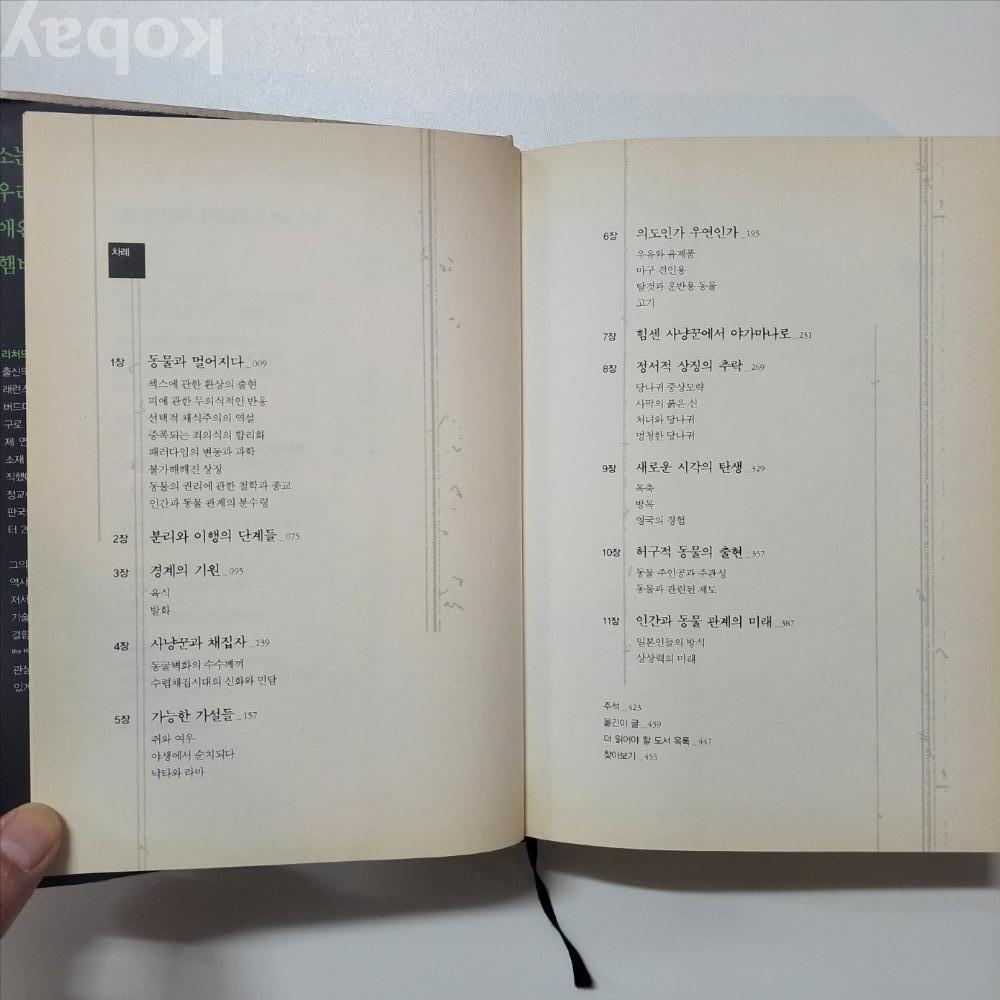 kobay
소는
우리
애완
햄버
리처드
출신의
래런스
버드대
구로
제 연
소재
직했다
정교수
판국
터 20
그의
역사
저서
기술
결함
the H
관심
있게
차례
1장 동물과 멀어지다_009
섹스에 관한 환상의 출현
피에 관한 무의식적인 반응
선택적 채식주의의 역설
증폭되는 죄의식의 합리화
패러다임의 변동과 과학
불가해해진 상징
동물의 권리에 관한 철학과 종교
인간과 동물 관계의 분수령
2장 분리와 이행의 단계들_075
3장 경계의 기원_095
육식
발화
4장 사냥꾼과 채집자_139
동굴벽화의 수수께끼
수렵채집시대의 신화와 민담
5장 가능한 가설들_157
쥐와 여우
야생에서 순치되다
낙타와 라마
6장 의도인가 우연인가_195
우유와 유제품
마구 견인용
탈것과 운반용 동물
고기
7장 힘센 사냥꾼에서 야가마나로_231
8장 정서적 상징의 추락_269
당나귀 중상모략
사막의 붉은 신
처녀와 당나귀
멍청한 당나귀
9장 새로운 시각의 탄생_329
목축
방목
영국의 경험
10장 허구적 동물의 출현_357
동물 주인공과 주관성
동물과 관련된 제도
11장 인간과 동물 관계의 미래_387
일본인들의 방식
상상력의 미래
주석_423
옮긴이 글_439
더 읽어야 할 도서 목록_447
찾아보기_455